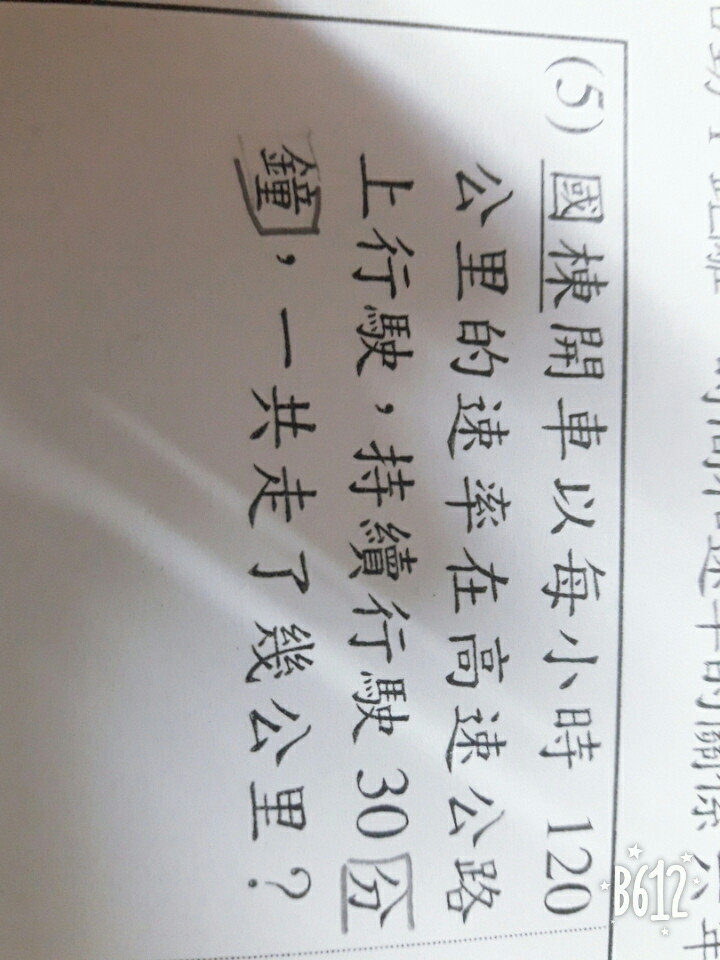 (5) 國棟開車以每小時 120
公里的速率在高速公路
上行駛，持續行駛 30 分
鐘，一共走了幾公里？
B612